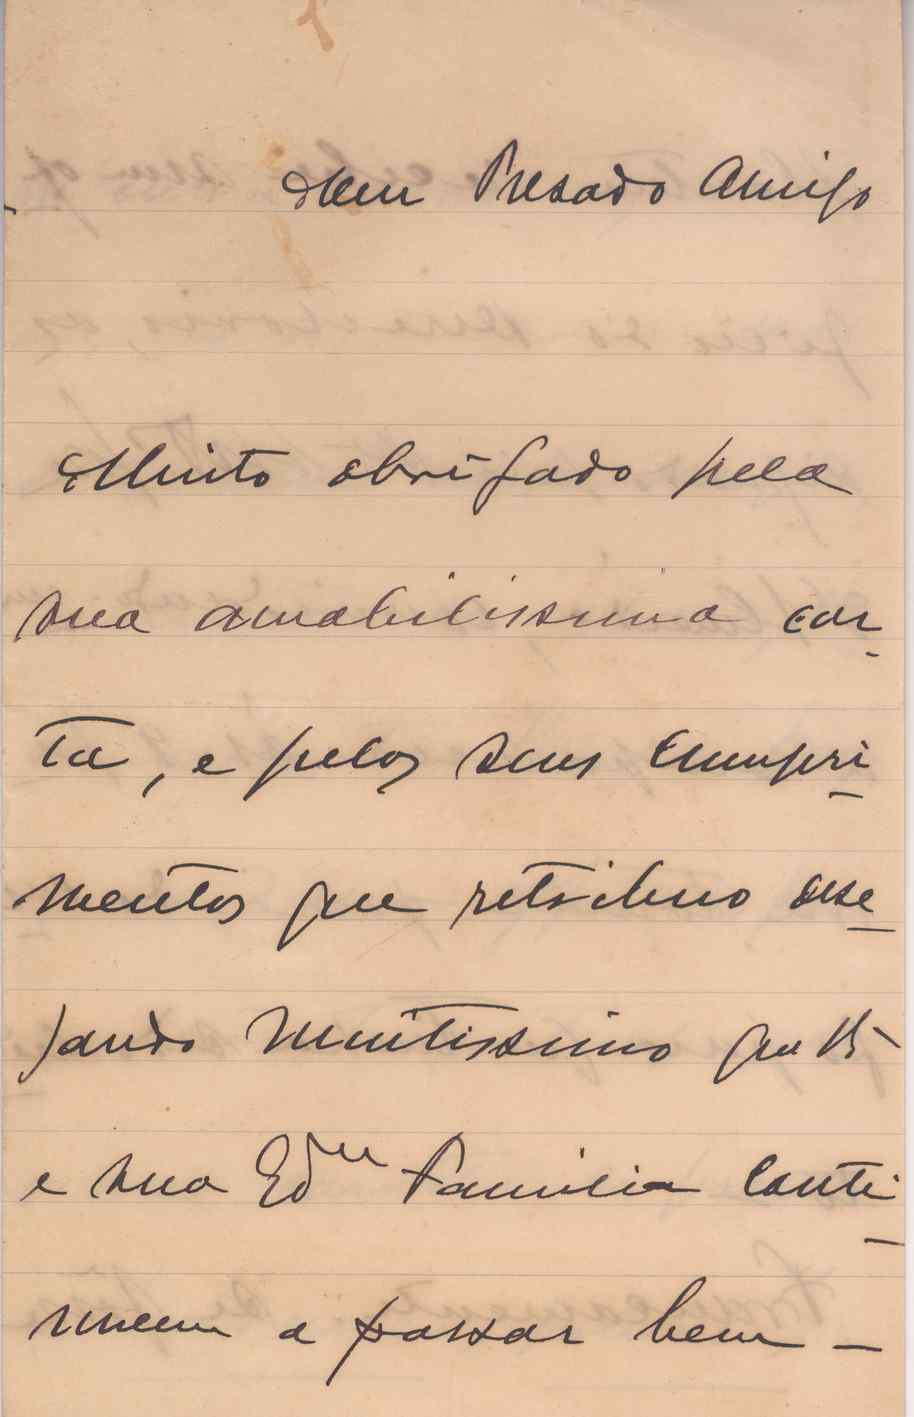 Meu Presado Amigo
Muito obrigado pela
sua amabilissima car-
ta, e pelos seus cumpri-
mentos que retribuo dese-
jando muitissimo que V.
e sua Familia conti-
nuem a passar bem -